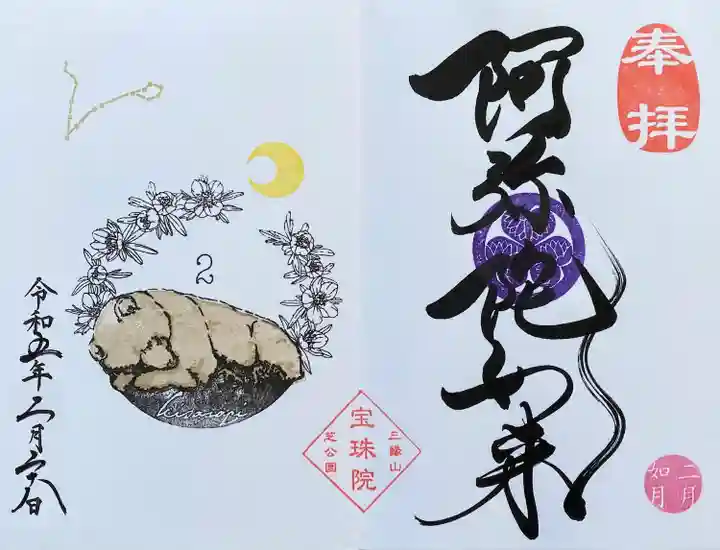 奉拝
阿弥陀如来
二月
如月
2
kisaragi
三縁山
宝珠院
芝公園
令和五年二月二六日